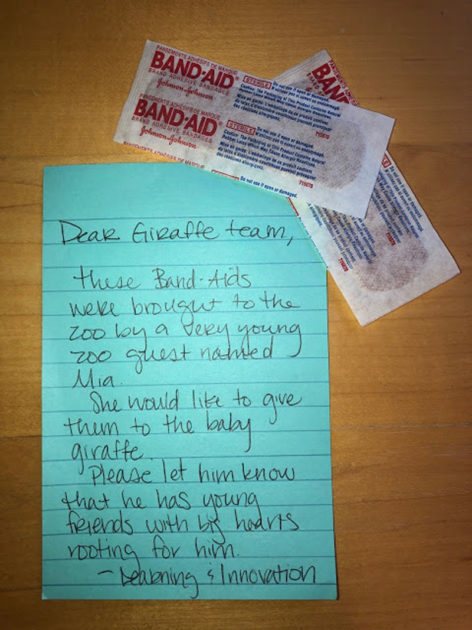 PANSEMENTS ADHÉSIFS DE MARQUE
BAND-AID®
BRAND ADHESIVE BANDAGES
Johnson & Johnson
STERILE
BAND-AID
BRAND ADHESIVE BANDAGES
Johnson & Johnson
STERILE
Do not use if open or damaged.
Dear Giraffe team,
these Band-Aids
were brought to the
zoo by a very young
zoo guest named
Mia.
She would like to give
them to the baby
giraffe.
Please let him know
that he has young
friends with big hearts
rooting for him.
- Learning & Innovation